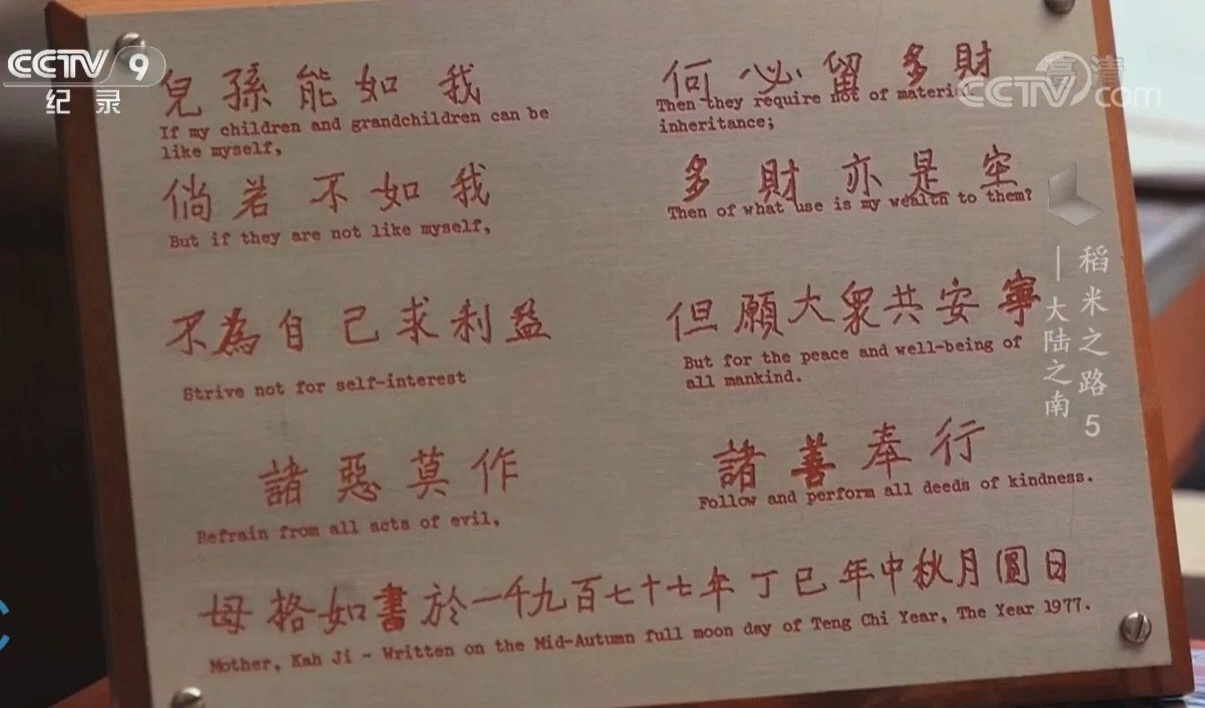 CCTV 9
纪录
高清
CCTV.com
兒孫能如我 何必留多財
If my children and grandchildren can be Then they require not of material
like myself, inheritance;
倘若不如我 多財亦是空
But if they are not like myself, Then of what use is my wealth to them?
不為自己求利益 但願大衆共安寧
Strive not for self-interest But for the peace and well-being of
all mankind.
諸惡莫作 諸善奉行
Refrain from all acts of evil, Follow and perform all deeds of kindness.
母格如書於一千九百七十七年丁巳年中秋月圓日
Mother, Kah Ji - Written on the Mid-Autumn full moon day of Teng Chi Year, The Year 1977.
稻米之路 5
—大陆之南